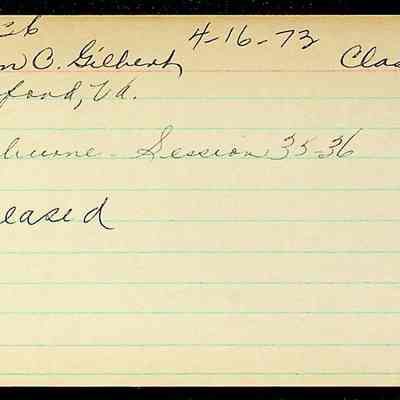 26 4-16-73
n C. Gilbert Clas
ford, Va.
burne - Session 35-36
eased